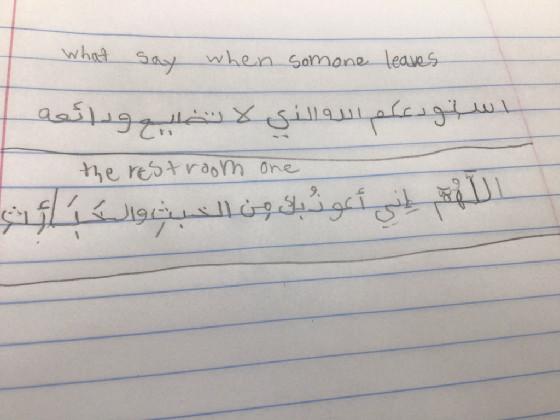 what say when somone leaves
استودعكم الله الذي لا تضيع ودائعه
the restroom one
اللَّهُمَّ إني أعوذُ بك مِن الخبث والخَبَائِث